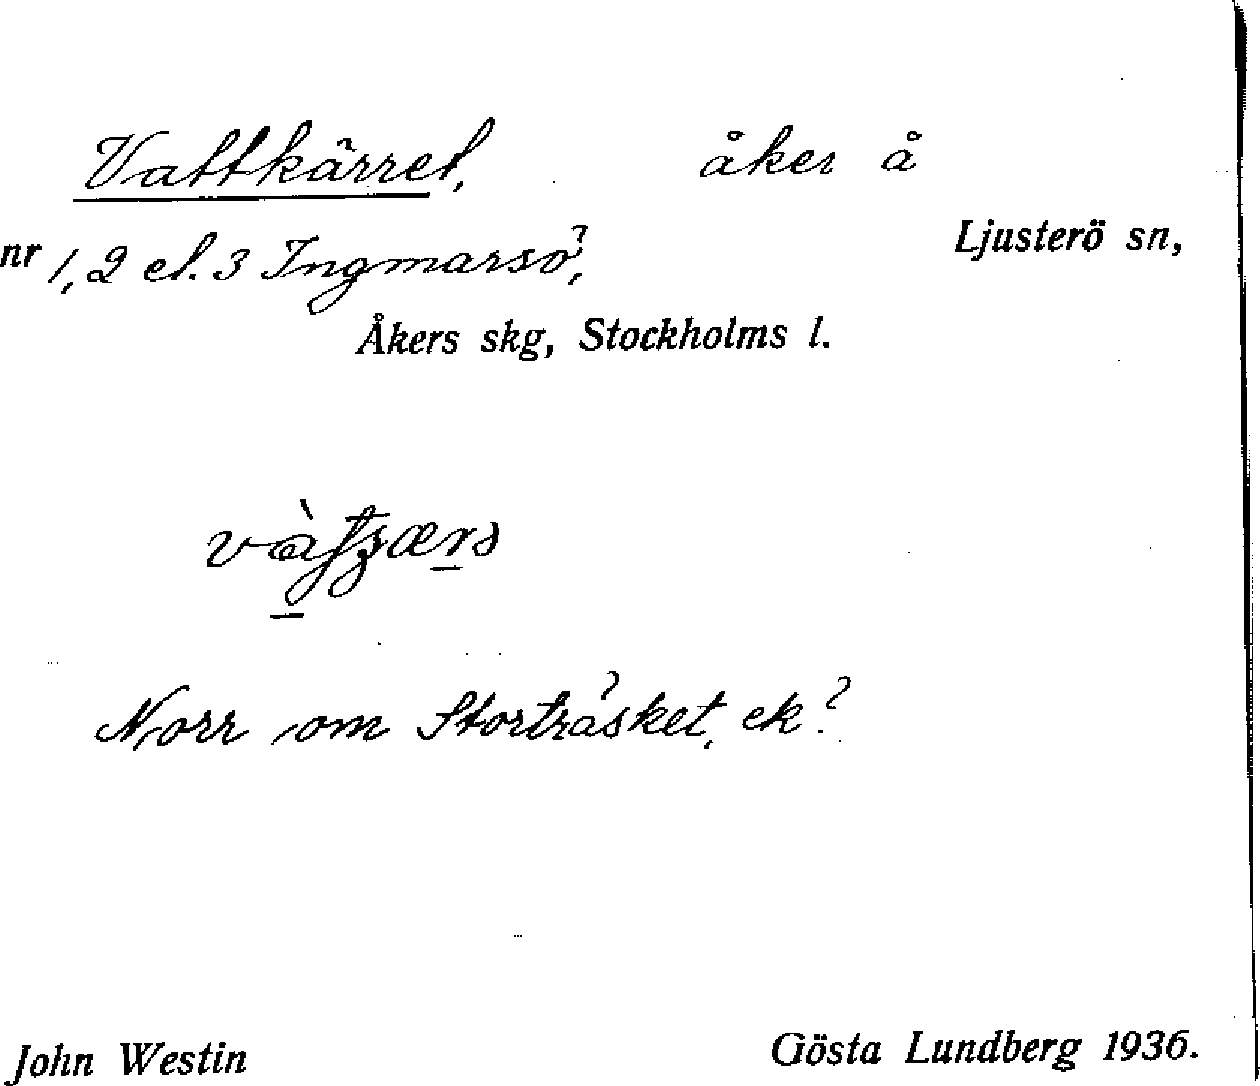 Vattkärret, åker å
Ljusterö sn,
nr 1, 2 el. 3 Ingmarsö,
Åkers skg, Stockholms l.
Norr om Storträsket, ek?
John Westin Gösta Lundberg 1936.